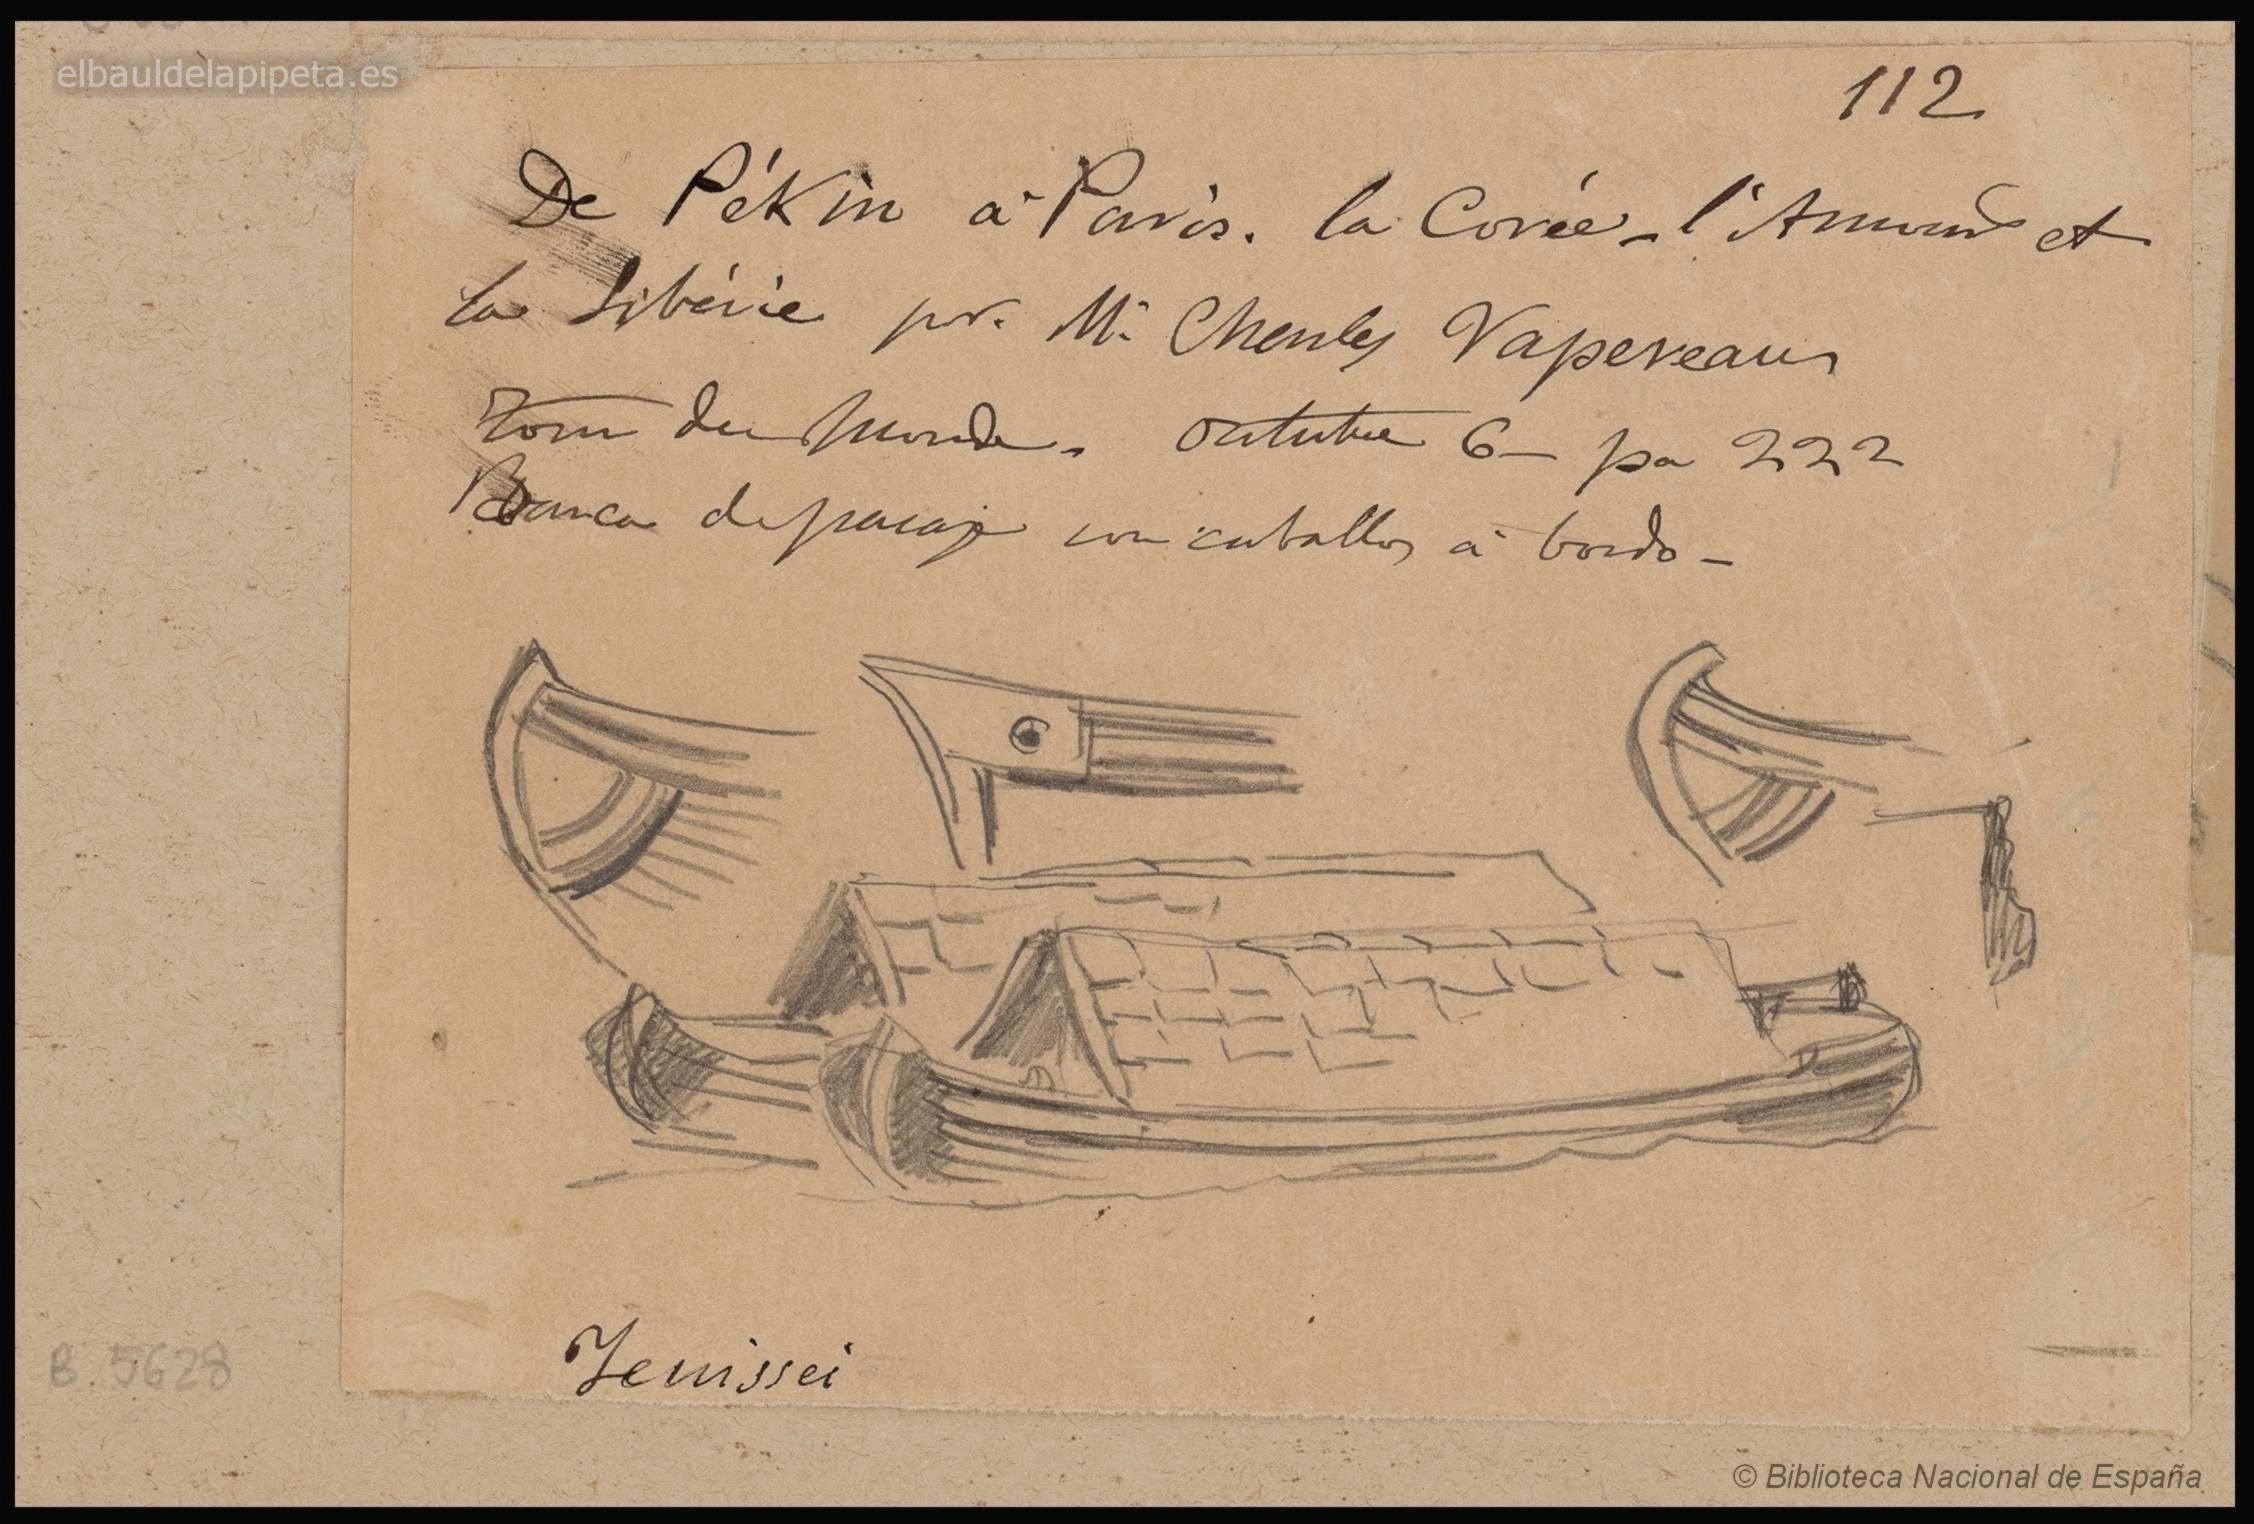 elbauldelapipeta.es
112
De Pékin à Paris. la Corée - l'Amour et
la Sibérie por Mr Charles Vapereau
Tour du Monde - Octubre 6 - pa 222
Barca de pasaje con caballos á bordo -
Jenissei
B. 5628
© Biblioteca Nacional de España